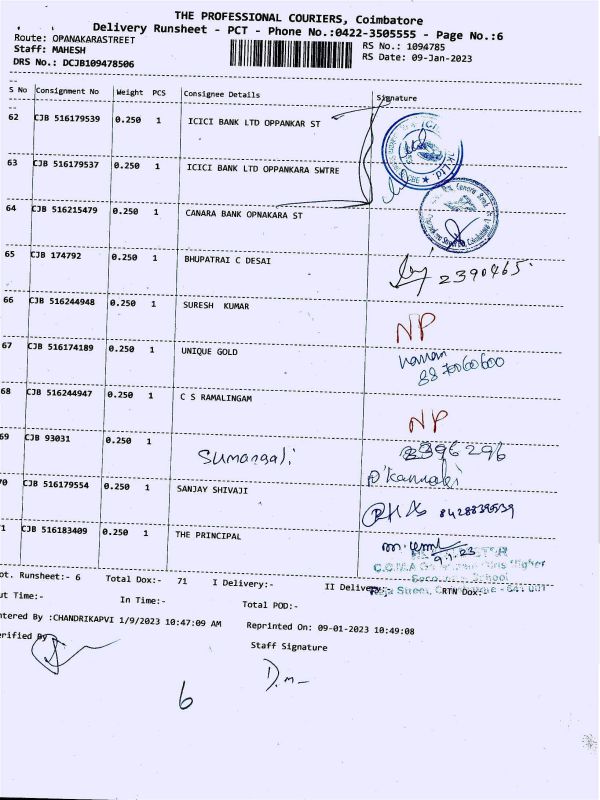 THE PROFESSIONAL COURIERS, Coimbatore
Delivery Runsheet - PCT - Phone No.:0422-3505555 - Page No.:6
Route: OPANAKARASTREET
RS No.: 1094785
Staff: MAHESH
RS Date: 09-Jan-2023
DRS No.: DCJB109478506
S No Consignment No Weight PCS Consignee Details Signature
62 CJB 516179539 0.250 1 ICICI BANK LTD OPPANKAR ST
63 CJB 516179537 0.250 1 ICICI BANK LTD OPPANKARA SWTRE
64 CJB 516215479 0.250 1 CANARA BANK OPNAKARA ST
65 CJB 174792 0.250 1 BHUPATRAI C DESAI 2390465
66 CJB 516244948 0.250 1 SURESH KUMAR NP
67 CJB 516174189 0.250 1 UNIQUE GOLD
8870060600
68 CJB 516244947 0.250 1 C S RAMALINGAM NP
69 CJB 93031 0.250 1 Sumangali 2396296
70 CJB 516179554 0.250 1 SANJAY SHIVAJI 8428839539
71 CJB 516183409 0.250 1 THE PRINCIPAL 9.1.23
ot. Runsheet:- 6 Total Dox:- 71 I Delivery:- II Delivery:- RTN Dox:-
ut Time:- In Time:- Total POD:-
ntered By :CHANDRIKAPVI 1/9/2023 10:47:09 AM Reprinted On: 09-01-2023 10:49:08
erified By Staff Signature
6